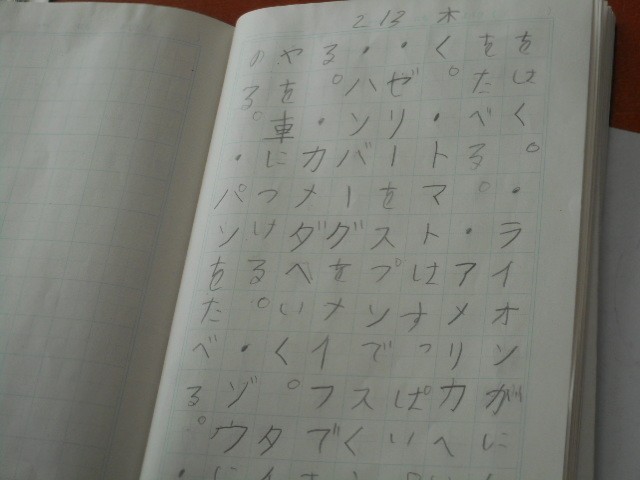 2 13 木
をはく。・ライオンがに
をたべる。・アメリカへい
く。・トマトはすっぱい
・ゼリーをスプンですく
・ハンバーグをナイフで
る。・カナダへいく。タイ
やを車につける。・ゾウに
のる。・パンをたべる。・